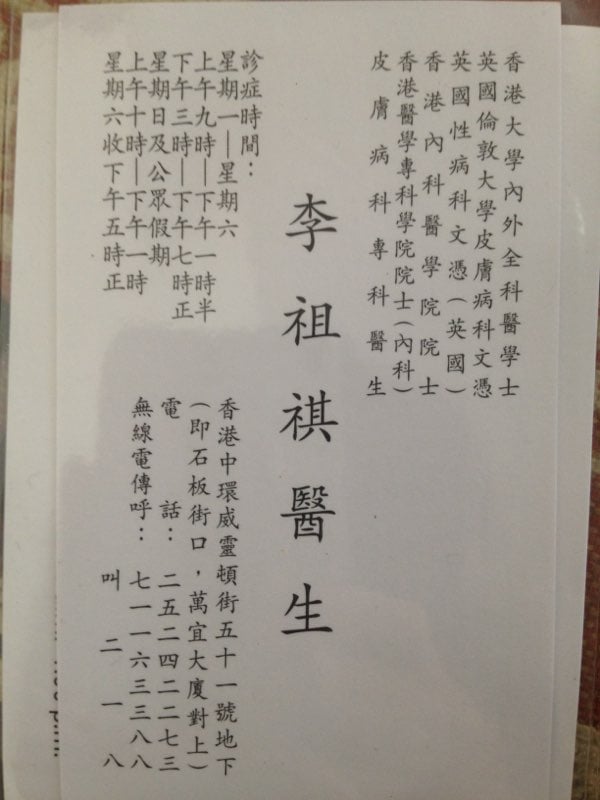 香港大學內外全科醫學士
英國倫敦大學皮膚病科文憑
英國性病科文憑（英國）
香港內科醫學院院士
香港醫學專科學院院士（內科）
皮膚病科專科醫生
李祖祺醫生
診症時間：
星期一｜星期六
上午九時｜下午一時半
下午三時｜下午七時正
星期日及公眾假期
上午十時｜下午一時
星期六收下午五時正
香港中環威靈頓街五十一號地下
（即石板街口，萬宜大廈對上）
電話：二五二四二二七三
無線電傳呼：七一一六三三八八
叫二一八